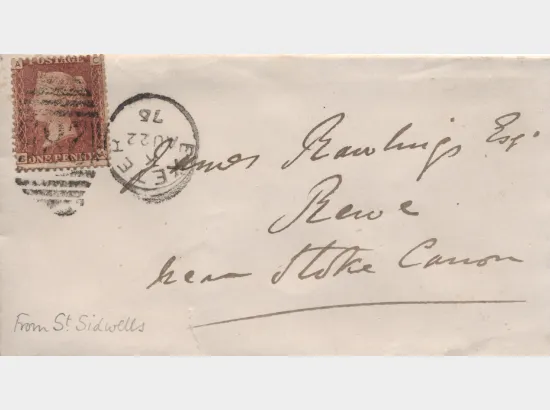 POSTAGE
ONE PENNY
EXETER
K
AU 22
75
James Rawlings Esqr
Rewe
near Stoke Canon
From St Sidwells